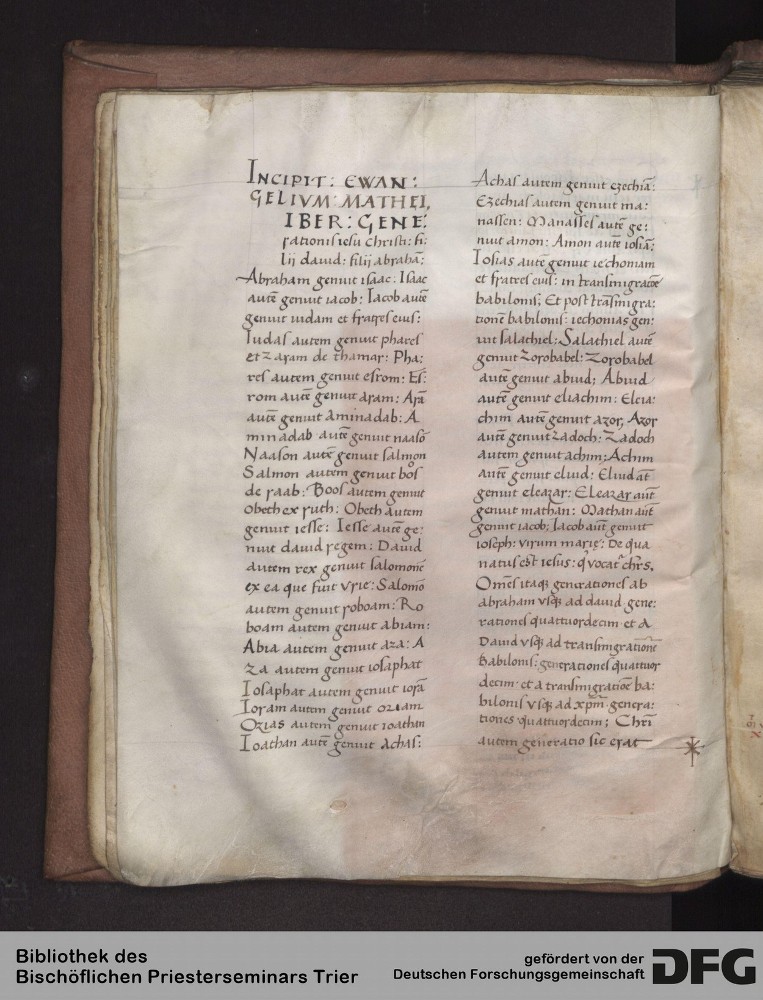 INCIPIT: EWAN:
GELIVM: MATHEI,
IBER: GENE:
rationis iesu Christi: fi:
lij dauid: filij abrahā:
Abraham genuit isaac: Isaac
autē genuit iacob: Iacob autē
genuit iudam et fratres eius:
Iudas autem genuit phares
et zaram de thamar: Pha:
res autem genuit esrom: Es:
rom autē genuit aram: Arā
autē genuit aminadab: A
minadab autē genuit naasō
Naason autē genuit salmon
Salmon autem genuit bos
de raab: Boos autem genuit
obeth ex ruth: Obeth autem
genuit iesse: Iesse autē ge:
nuit dauid regem: Dauid
autem rex genuit salomonē
ex ea que fuit vrie: Salomō
autem genuit roboam: Ro
boam autem genuit abiam:
Abia autem genuit aza: A
za autem genuit iosaphat
Iosaphat autem genuit iorā
Ioram autem genuit oziam
Ozias autem genuit ioathan
Ioathan autē genuit Achas:
Achas autem genuit ezechiā:
Ezechias autem genuit ma:
nassen: Manasses autē ge:
nuit amon: Amon autē iosiā:
Iosias autē genuit iechoniam
et fratres eius: in transmigracōe
babilonis; Et post trāsmigra:
tionē babilonis: iechonias gen:
uit salathiel: Salathiel autē
genuit Zorobabel: Zorobabel
autē genuit abiud; Abiud
autē genuit eliachim: Elia:
chim autē genuit azor, Azor
autē genuit Zadoch: Zadoch
autem genuit achim; Achim
autē genuit eliud: Eliud at̄
genuit eleazar: Eleazar aut̄
genuit mathan: Mathan aut̄
genuit iacob; Iacob aut̄ genuit
ioseph: virum marie: De qua
natus est iesus: q̇ vocat᷑ chr̄s.
Omēs itaqꝫ generationes ab
abraham vsqꝫ ad dauid gene:
rationes quattuordecim et A
Dauid vsqꝫ ad transmigrationē
Babilonis: generationes quattuor
decim et a transmigratiōe ba:
bilonis vsqꝫ ad xp̄m genera:
tiones quattuordecim; Chr̄i
autem generatio sic erat
Bibliothek des
Bischöflichen Priesterseminars Trier
gefördert von der
Deutschen Forschungsgemeinschaft
DFG